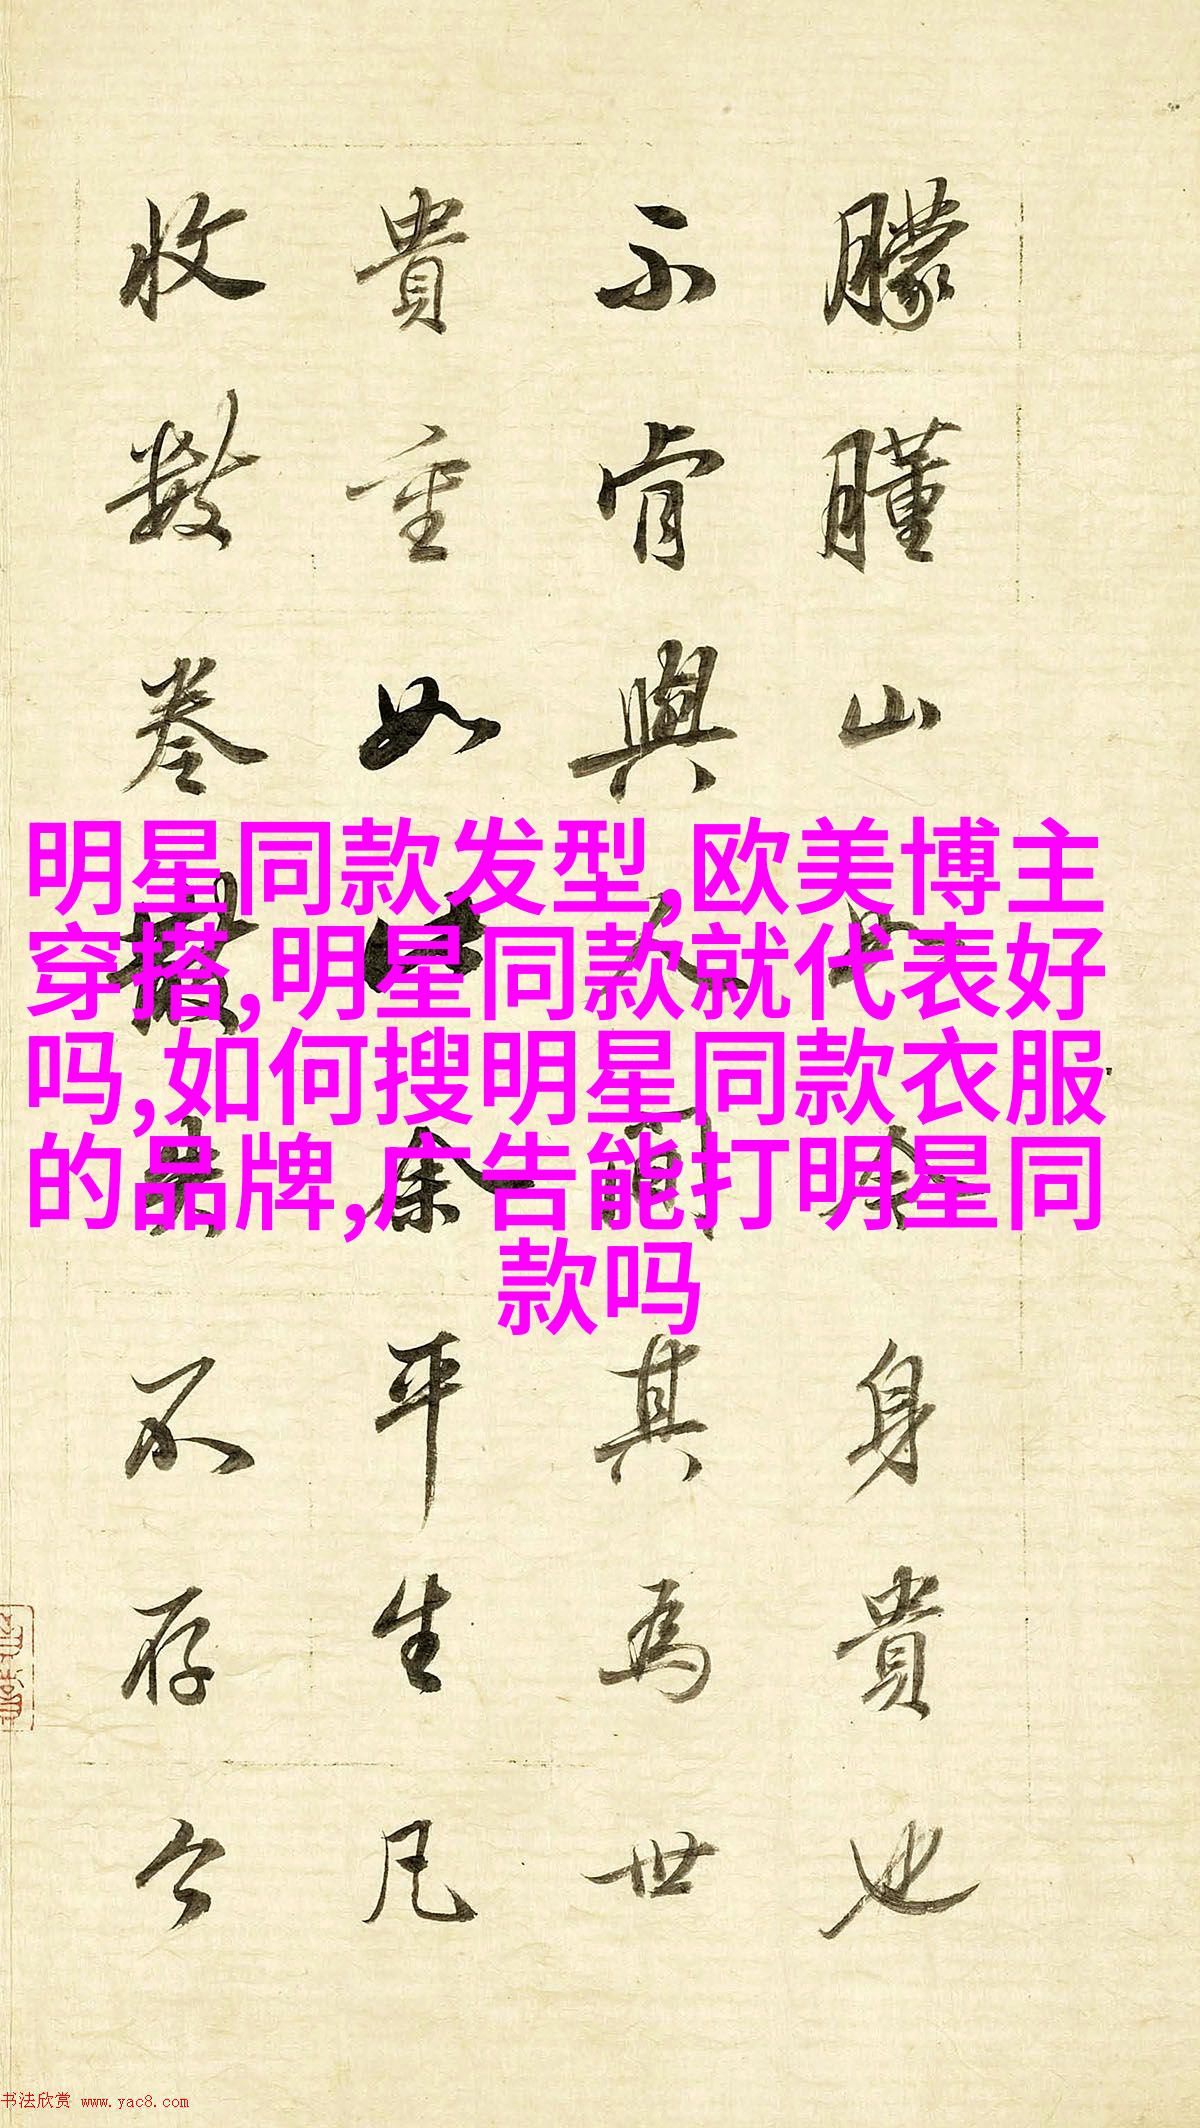 朦腫山
身貴也
不肯與
其為世
貴重如
余平生凡
收數卷
不存今
明星同款发型,欧美博主
穿搭,明星同款就代表好
吗,如何搜明星同款衣服
的品牌,广告能打明星同
款吗
书法欣赏 www.yac8.com